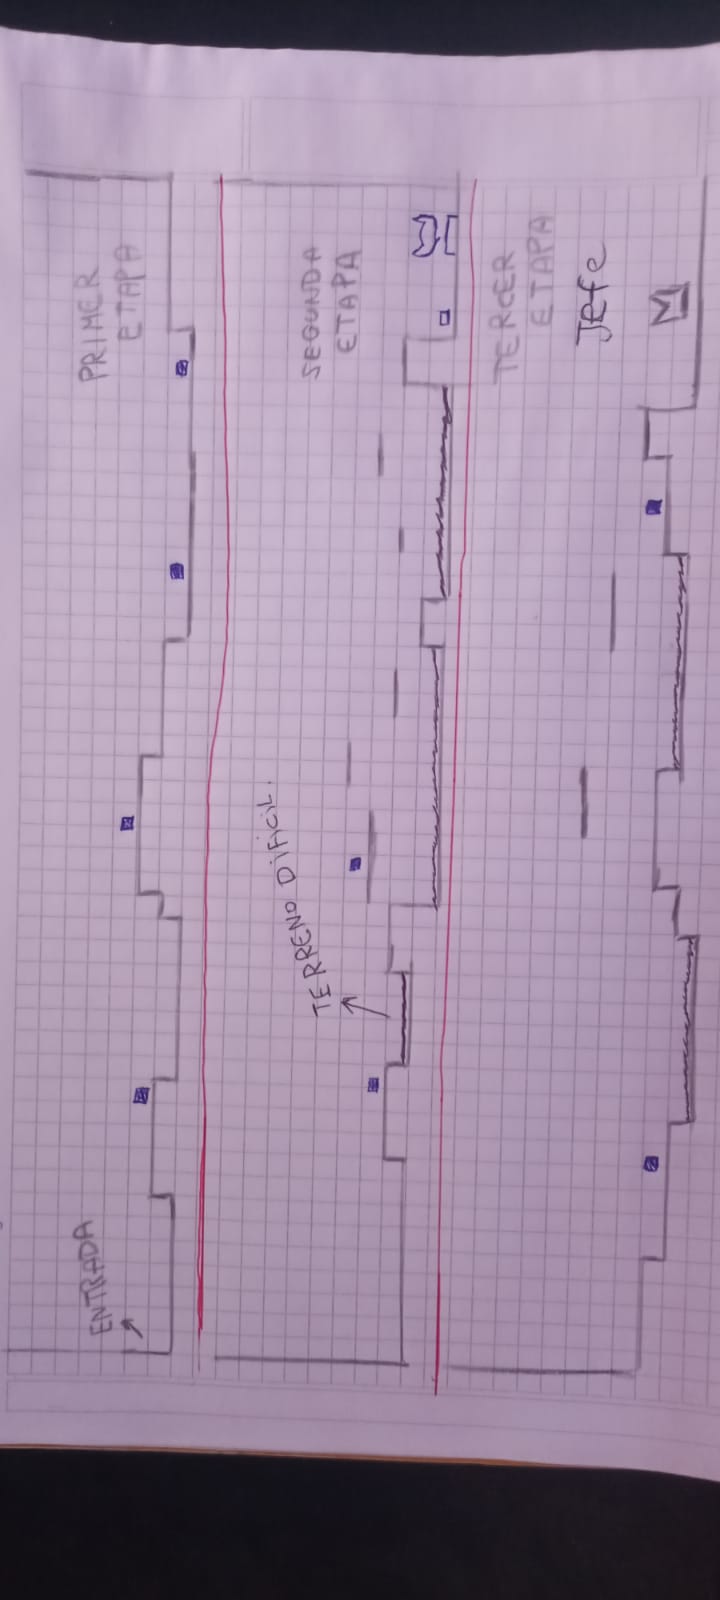 ENTRADA
PRIMER
ETAPA
TERRENO DIFICIL.
SEGUNDA
ETAPA
TERCER
ETAPA
Jefe